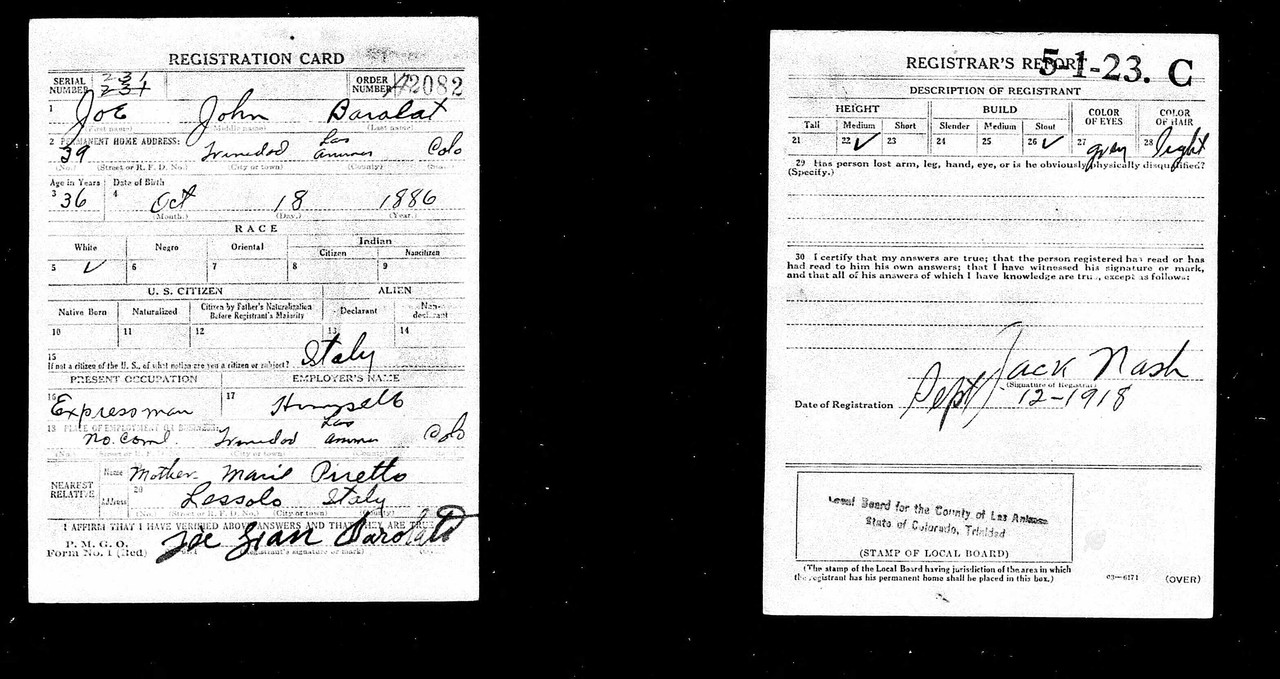 REGISTRATION CARD
SERIAL NUMBER 231 ORDER NUMBER 2082
1 Joe John Baralat
(First name) (Middle name) (Last name)
2 PERMANENT HOME ADDRESS:
39 Trinidad Las Animas Colo
(No.) (Street or R. F. D. No.) (City or town) (County) (State)
Age in Years Date of Birth
3 36 4 Oct 18 1886
(Month.) (Day.) (Year.)
RACE
White Negro Oriental Indian
Citizen Noncitizen
5 ✓ 6 7 8 9
U. S. CITIZEN ALIEN
Native Born Naturalized Citizen by Father's Naturalization Before Registrant's Majority Declarant Non-declarant
10 11 12 13 14
15 If not a citizen of the U. S., of what nation are you a citizen or subject? Italy
PRESENT OCCUPATION EMPLOYER'S NAME
16 Expressman 17
18 PLACE OF EMPLOYMENT OR BUSINESS:
no. Coml. Trinidad Las Animas Colo
(No.) (Street or R. F. D. No.) (City or town) (County)
NEAREST RELATIVE Name Mother Marie
Address 20 Lessolo Italy
(No.) (Street or R. F. D. No.) (City or town) (County)
I AFFIRM THAT I HAVE VERIFIED ABOVE ANSWERS AND THAT THEY ARE TRUE
P. M. G. O.
Form No. 1 (Red) Joe Gian
(Registrant's signature or mark)
REGISTRAR'S REPORT 5-1-23. C
DESCRIPTION OF REGISTRANT
HEIGHT BUILD COLOR OF EYES COLOR OF HAIR
Tall Medium Short Slender Medium Stout
21 22 ✓ 23 24 25 26 ✓ 27 gray 28 light
29 Has person lost arm, leg, hand, eye, or is he obviously physically disqualified?
(Specify.)
30 I certify that my answers are true; that the person registered has read or has
had read to him his own answers; that I have witnessed his signature or mark,
and that all of his answers of which I have knowledge are true, except as follows:
Jack Nash
(Signature of Registrar)
Date of Registration Sept 12-1918
Local Board for the County of Las Animas
State of Colorado, Trinidad
(STAMP OF LOCAL BOARD)
(The stamp of the Local Board having jurisdiction of the area in which
the registrant has his permanent home shall be placed in this box.)
03—6171 (OVER)